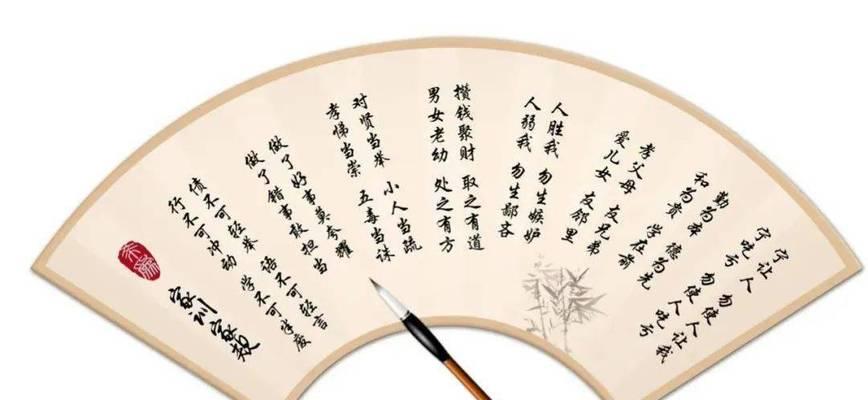 宁让人 勿使人让我
宁吃亏 勿使人吃亏
勤为本 德为先
和为贵 学在前
孝父母 友兄弟
爱儿女 友邻里
人胜我 勿生嫉妒
人弱我 勿生鄙吝
攒钱聚财 取之有道
男女老幼 处之有方
对贤当举 小人当疏
孝悌当崇 五毒当诛
做了好事莫夸耀
做了错事敢担当
债不可轻举 语不可轻言
行不可冲动 学不可半废
家训家教